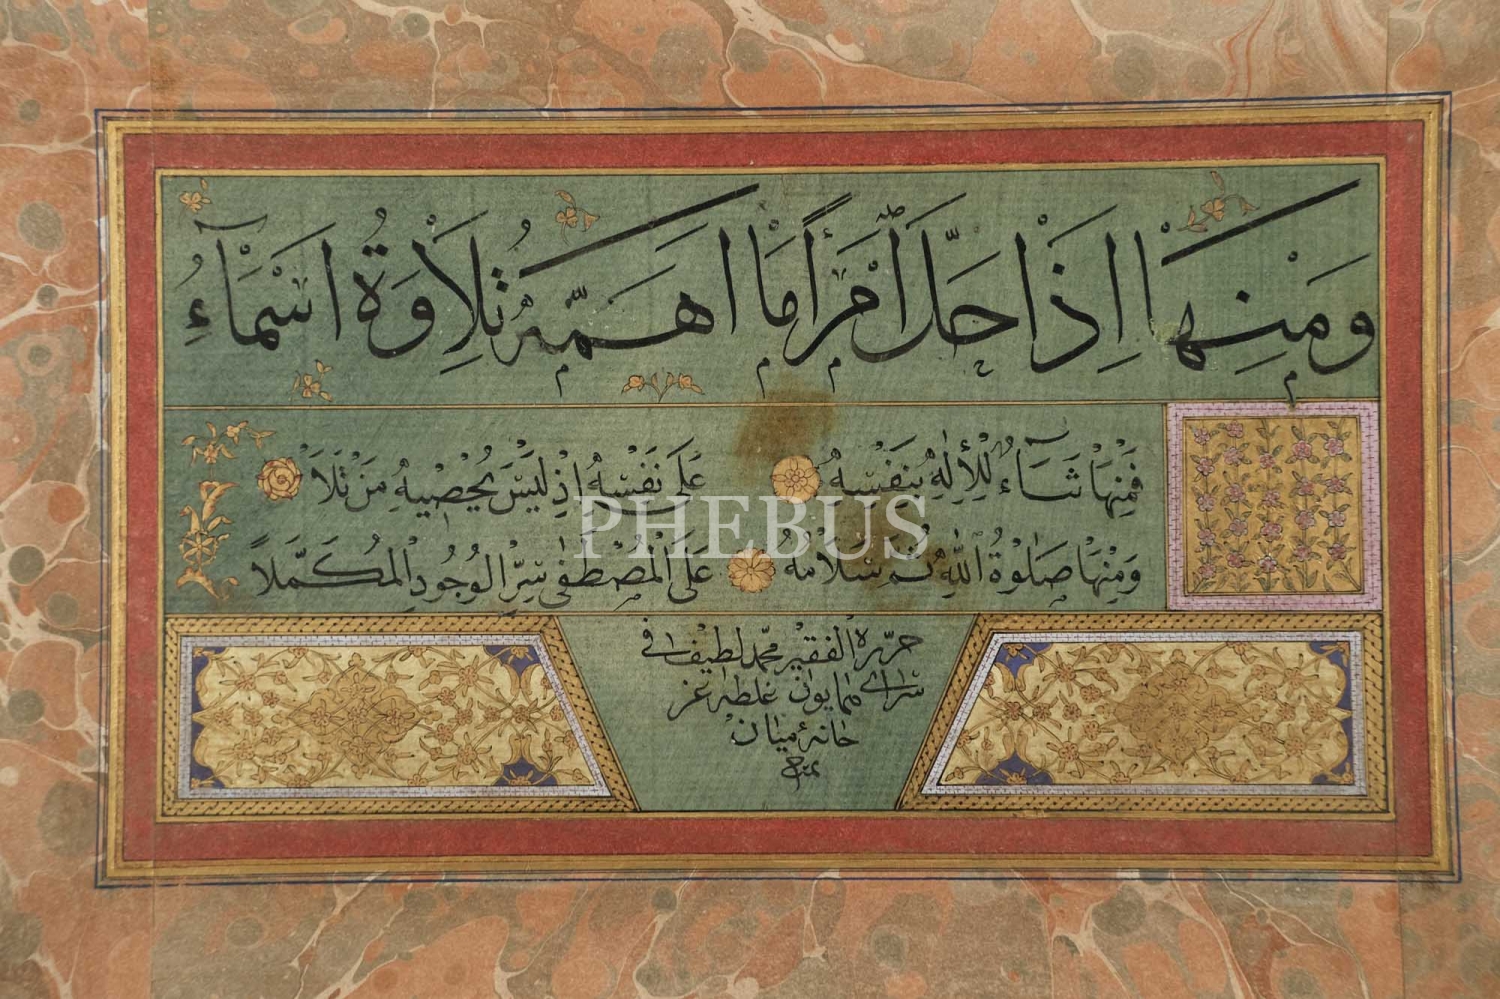 وَمِنْهَا اِذَا حَلَّ اَمْرٌ اَمَا اَهَمَّهُ تِلَاوَةُ اَسْمَاءُ
فَمِنْهَا ثَنَاءٌ لِلْاِلٰهِ بِنَفْسِهِ عَلَى نَفْسِهِ اِذْ لَيْسَ يُحْصِيهِ مَنْ تَلَا
وَمِنْهَا صَلٰوةُ اللّٰهِ ثُمَّ سَلَامُهُ عَلَى الْمُصْطَفٰى سِرِّ الْوُجُودِ الْمُكَمَّلَا
حرره الفقير محمد لطيف في
سراي همايون غلطه
خانهٔ ميان
PHEBUS